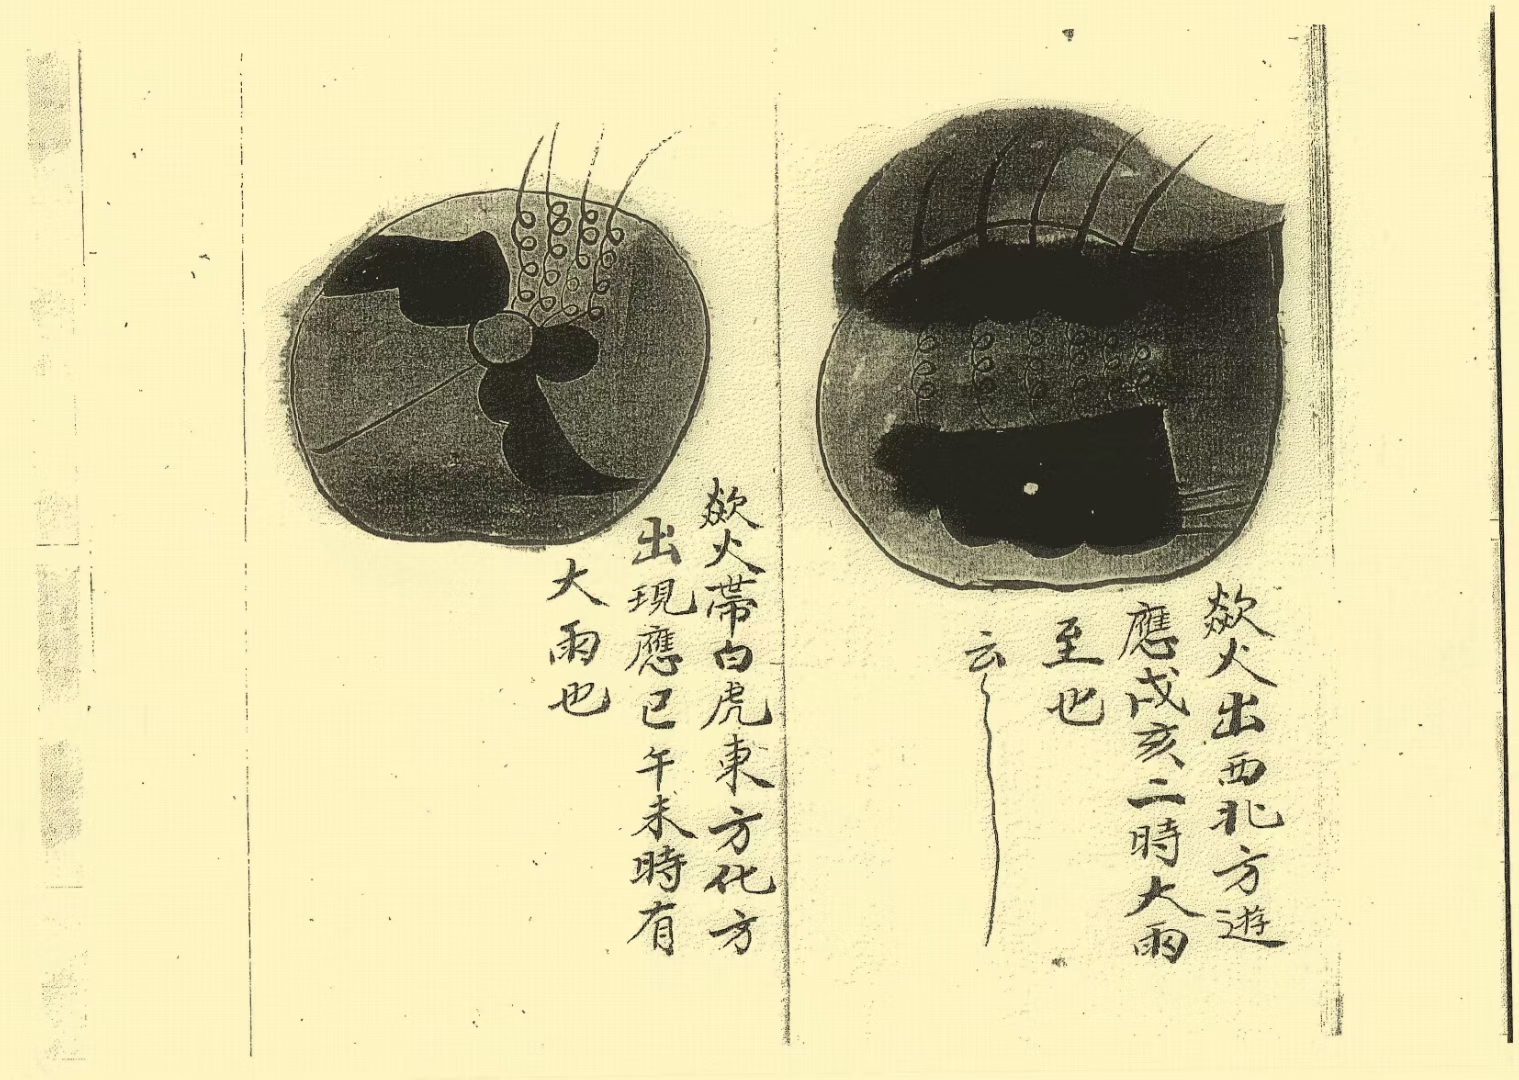 歘火出西北方遊
應戌亥二時大雨
至也
云
歘火帶白虎東方化方
出現應巳午未時有
大雨也